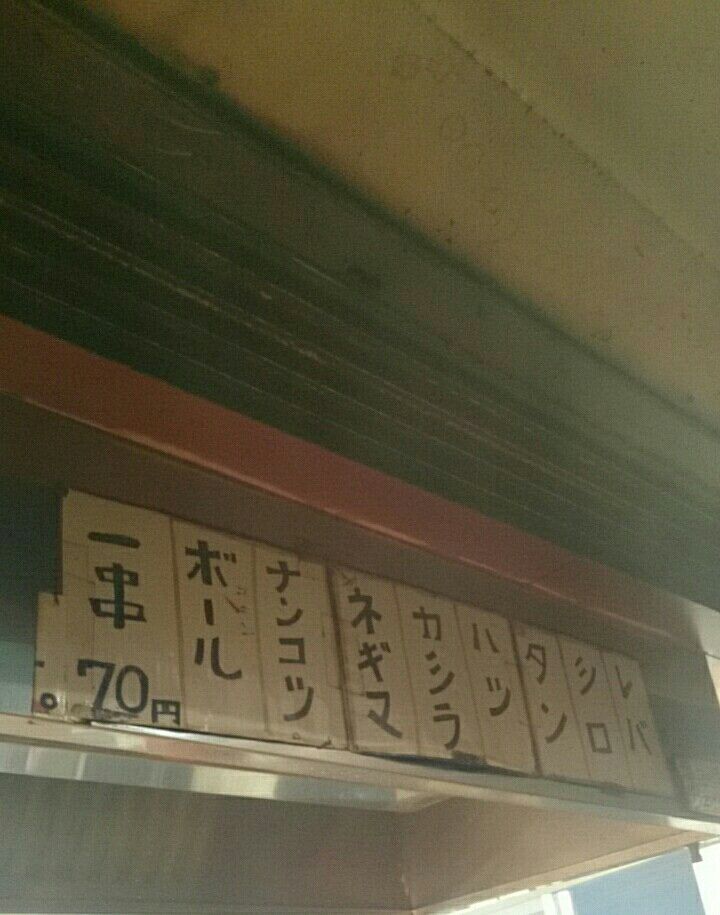 レバ
シロ
タン
ハツ
カシラ
ネギマ
ナンコツ
ボール
一串
70円